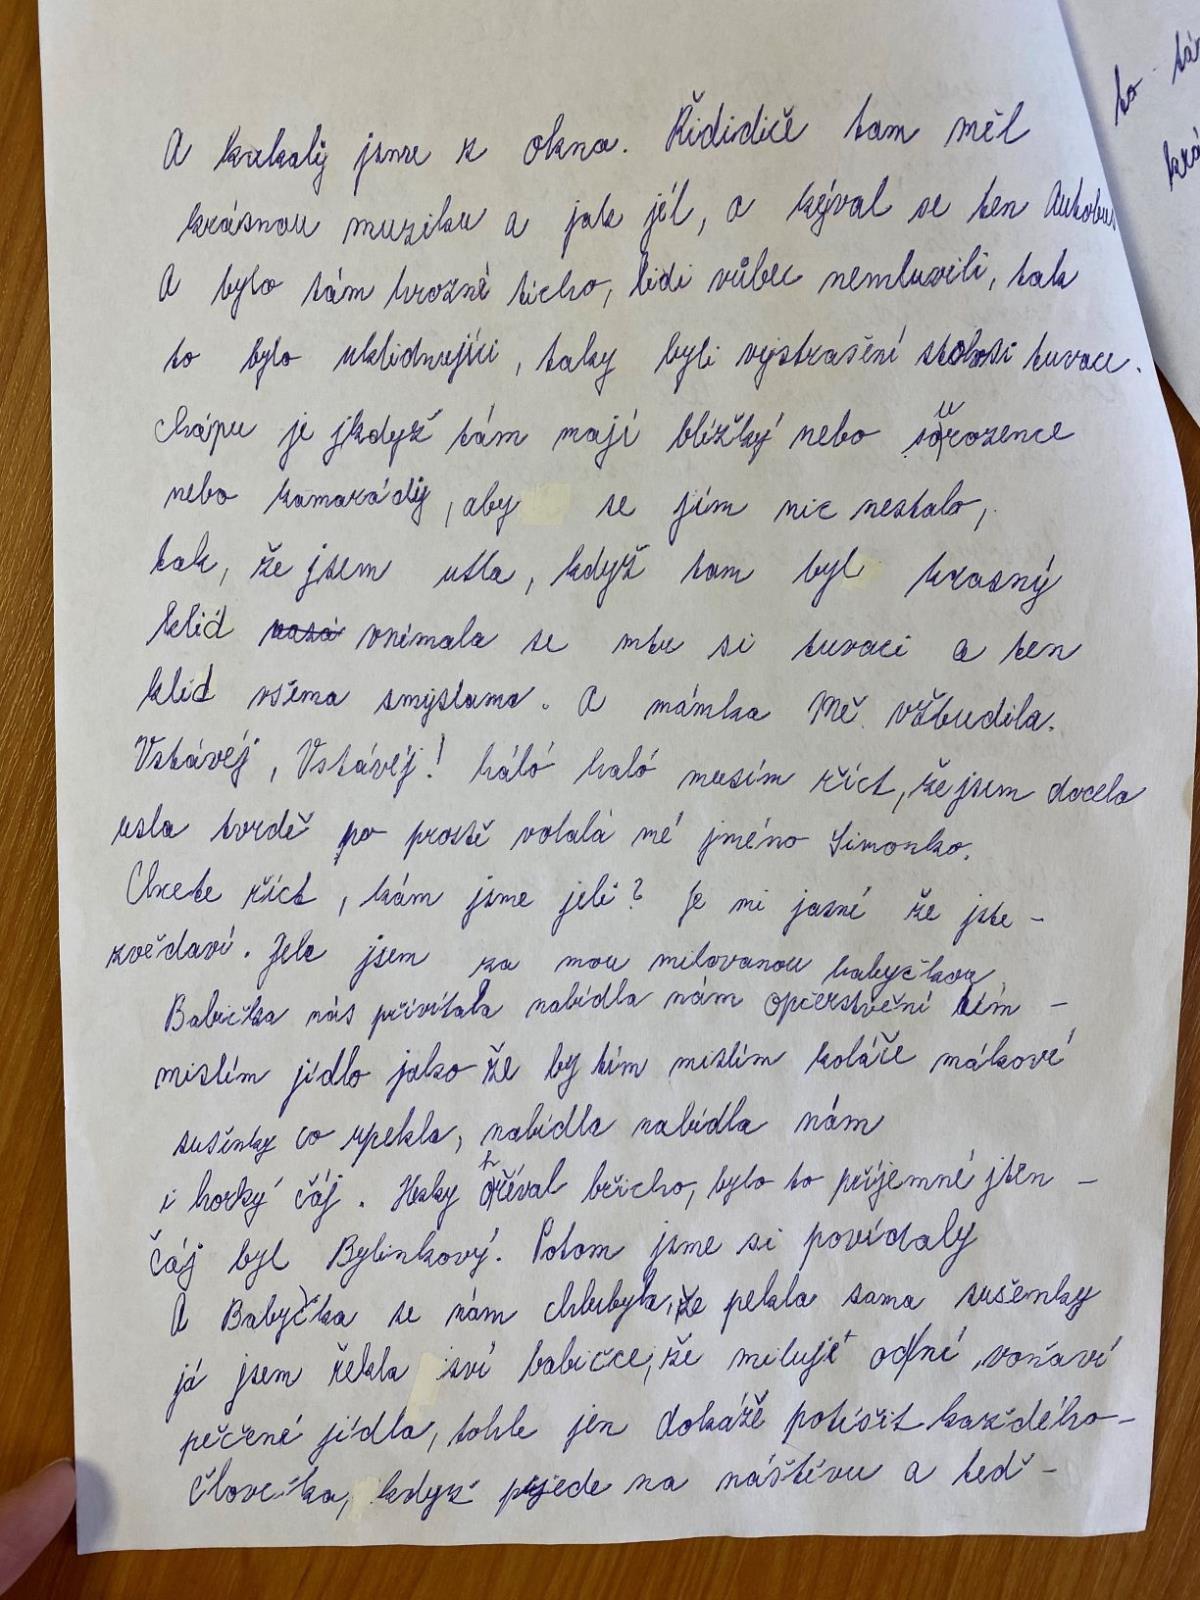 A kukaly jsme z okna. Řididiče tam měl
krásnou muziku a jak jél, a kýval se ten Autobus
A bylo tám hrozné ticho, lidi vůbec nemluvili, tak
to bylo uklidnujíci, taky byli vystrašení
chápu je jkdyž tám mají blížký nebo sourozence
nebo kamarády, aby se jím nic nestalo,
tak, že jsem usla, když tam byl krasný
klid vnímala se a ten
klid všema smyslama. A mámka Mě vžbudila.
Vstávéj, Vstávéj! háló haló musím říct, že jsem docela
usla tvrdě po prostě volalá mé jméno Simonko.
Chcete říct, kám jsme jeli? Je mi jasné že jste -
zvědaví. Jela jsem za mou milovanou babyčkou
Babička nás přivítala nabídla nám opčerstvění tím -
mislím jídlo jako že by tím mislím koláče mákové
sušenky co upekla, nabídla nabídla nám
i horký čáj. Hezky hřéval břicho, bylo to příjemné jten -
čáj byl Bylinkový. Potom jsme si povídaly
A Babyčka se nám chlubyla, že pekla sama sušenky
já jsem řekla sví babičce, že milujé voňaví
pečené jídla, tohle jen dokáže potěšit každého -
človčka, kdyz pjede na náštěvu a teď -
to tá
krá